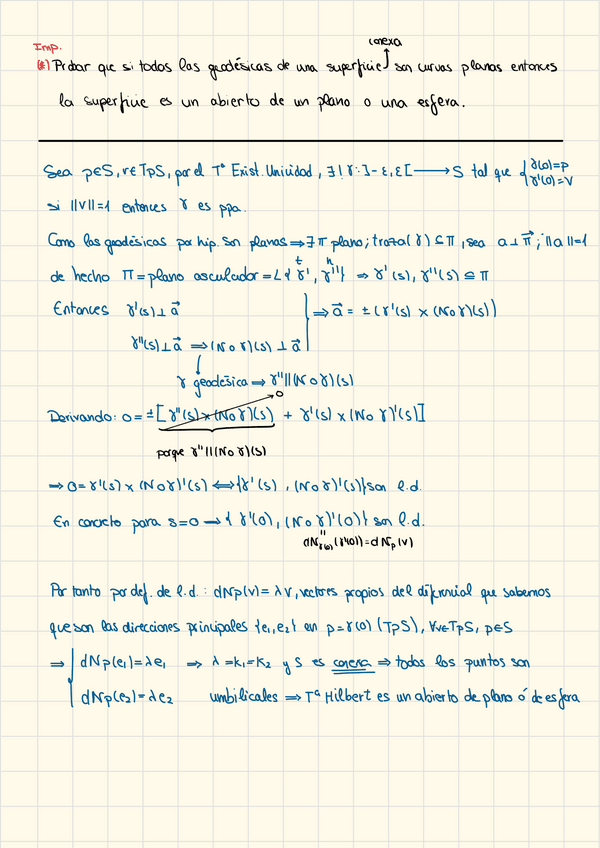 Imp.
conexa
(*) Probar que si todas las geodésicas de una superficie son curvas planas entonces
la superficie es un abierto de un plano o una esfera.
Sea p∈S, v∈TpS, por el Tª Exist. Unicidad, ∃! γ: ]-ε, ε[ ⟶ S tal que { γ(0)=p
γ'(0)=v
si ||v||=1 entonces γ es ppa.
Como las geodésicas por hip. son planas ⇒ ∃ π plano; traza(γ) ⊆ π, sea a ⊥ π⃗; ||a||=1
t n
de hecho Π = plano osculador = L{γ', γ''} ⇒ γ'(s), γ''(s) ⊆ π
Entonces γ'(s) ⊥ a⃗ | ⇒ a⃗ = ± (γ'(s) × (N∘γ)(s))
γ''(s) ⊥ a⃗ ⇒ (N∘γ)(s) ⊥ a⃗
γ geodésica ⇒ γ'' || (N∘γ)(s)
Derivando: 0 = ± [γ''(s) × (N∘γ)(s) →0 + γ'(s) × (N∘γ)'(s)]
porque γ'' || (N∘γ)(s)
⇒ 0 = γ'(s) × (N∘γ)'(s) ⟺ {γ'(s), (N∘γ)'(s)} son l.d.
En concreto para s=0 → {γ'(0), (N∘γ)'(0)} son l.d.
dN_γ(0)(γ'(0)) = dNp(v)
Por tanto por def. de l.d.: dNp(v) = λv, vectores propios del diferencial que sabemos
que son las direcciones principales {e₁, e₂} en p=γ(0) (TpS), ∀v∈TpS, p∈S
⇒ { dNp(e₁) = λe₁ ⇒ λ = k₁ = k₂ y S es conexa ⇒ todos los puntos son
dNp(e₂) = λe₂ umbilicales ⇒ Tª Hilbert es un abierto de plano ó de esfera